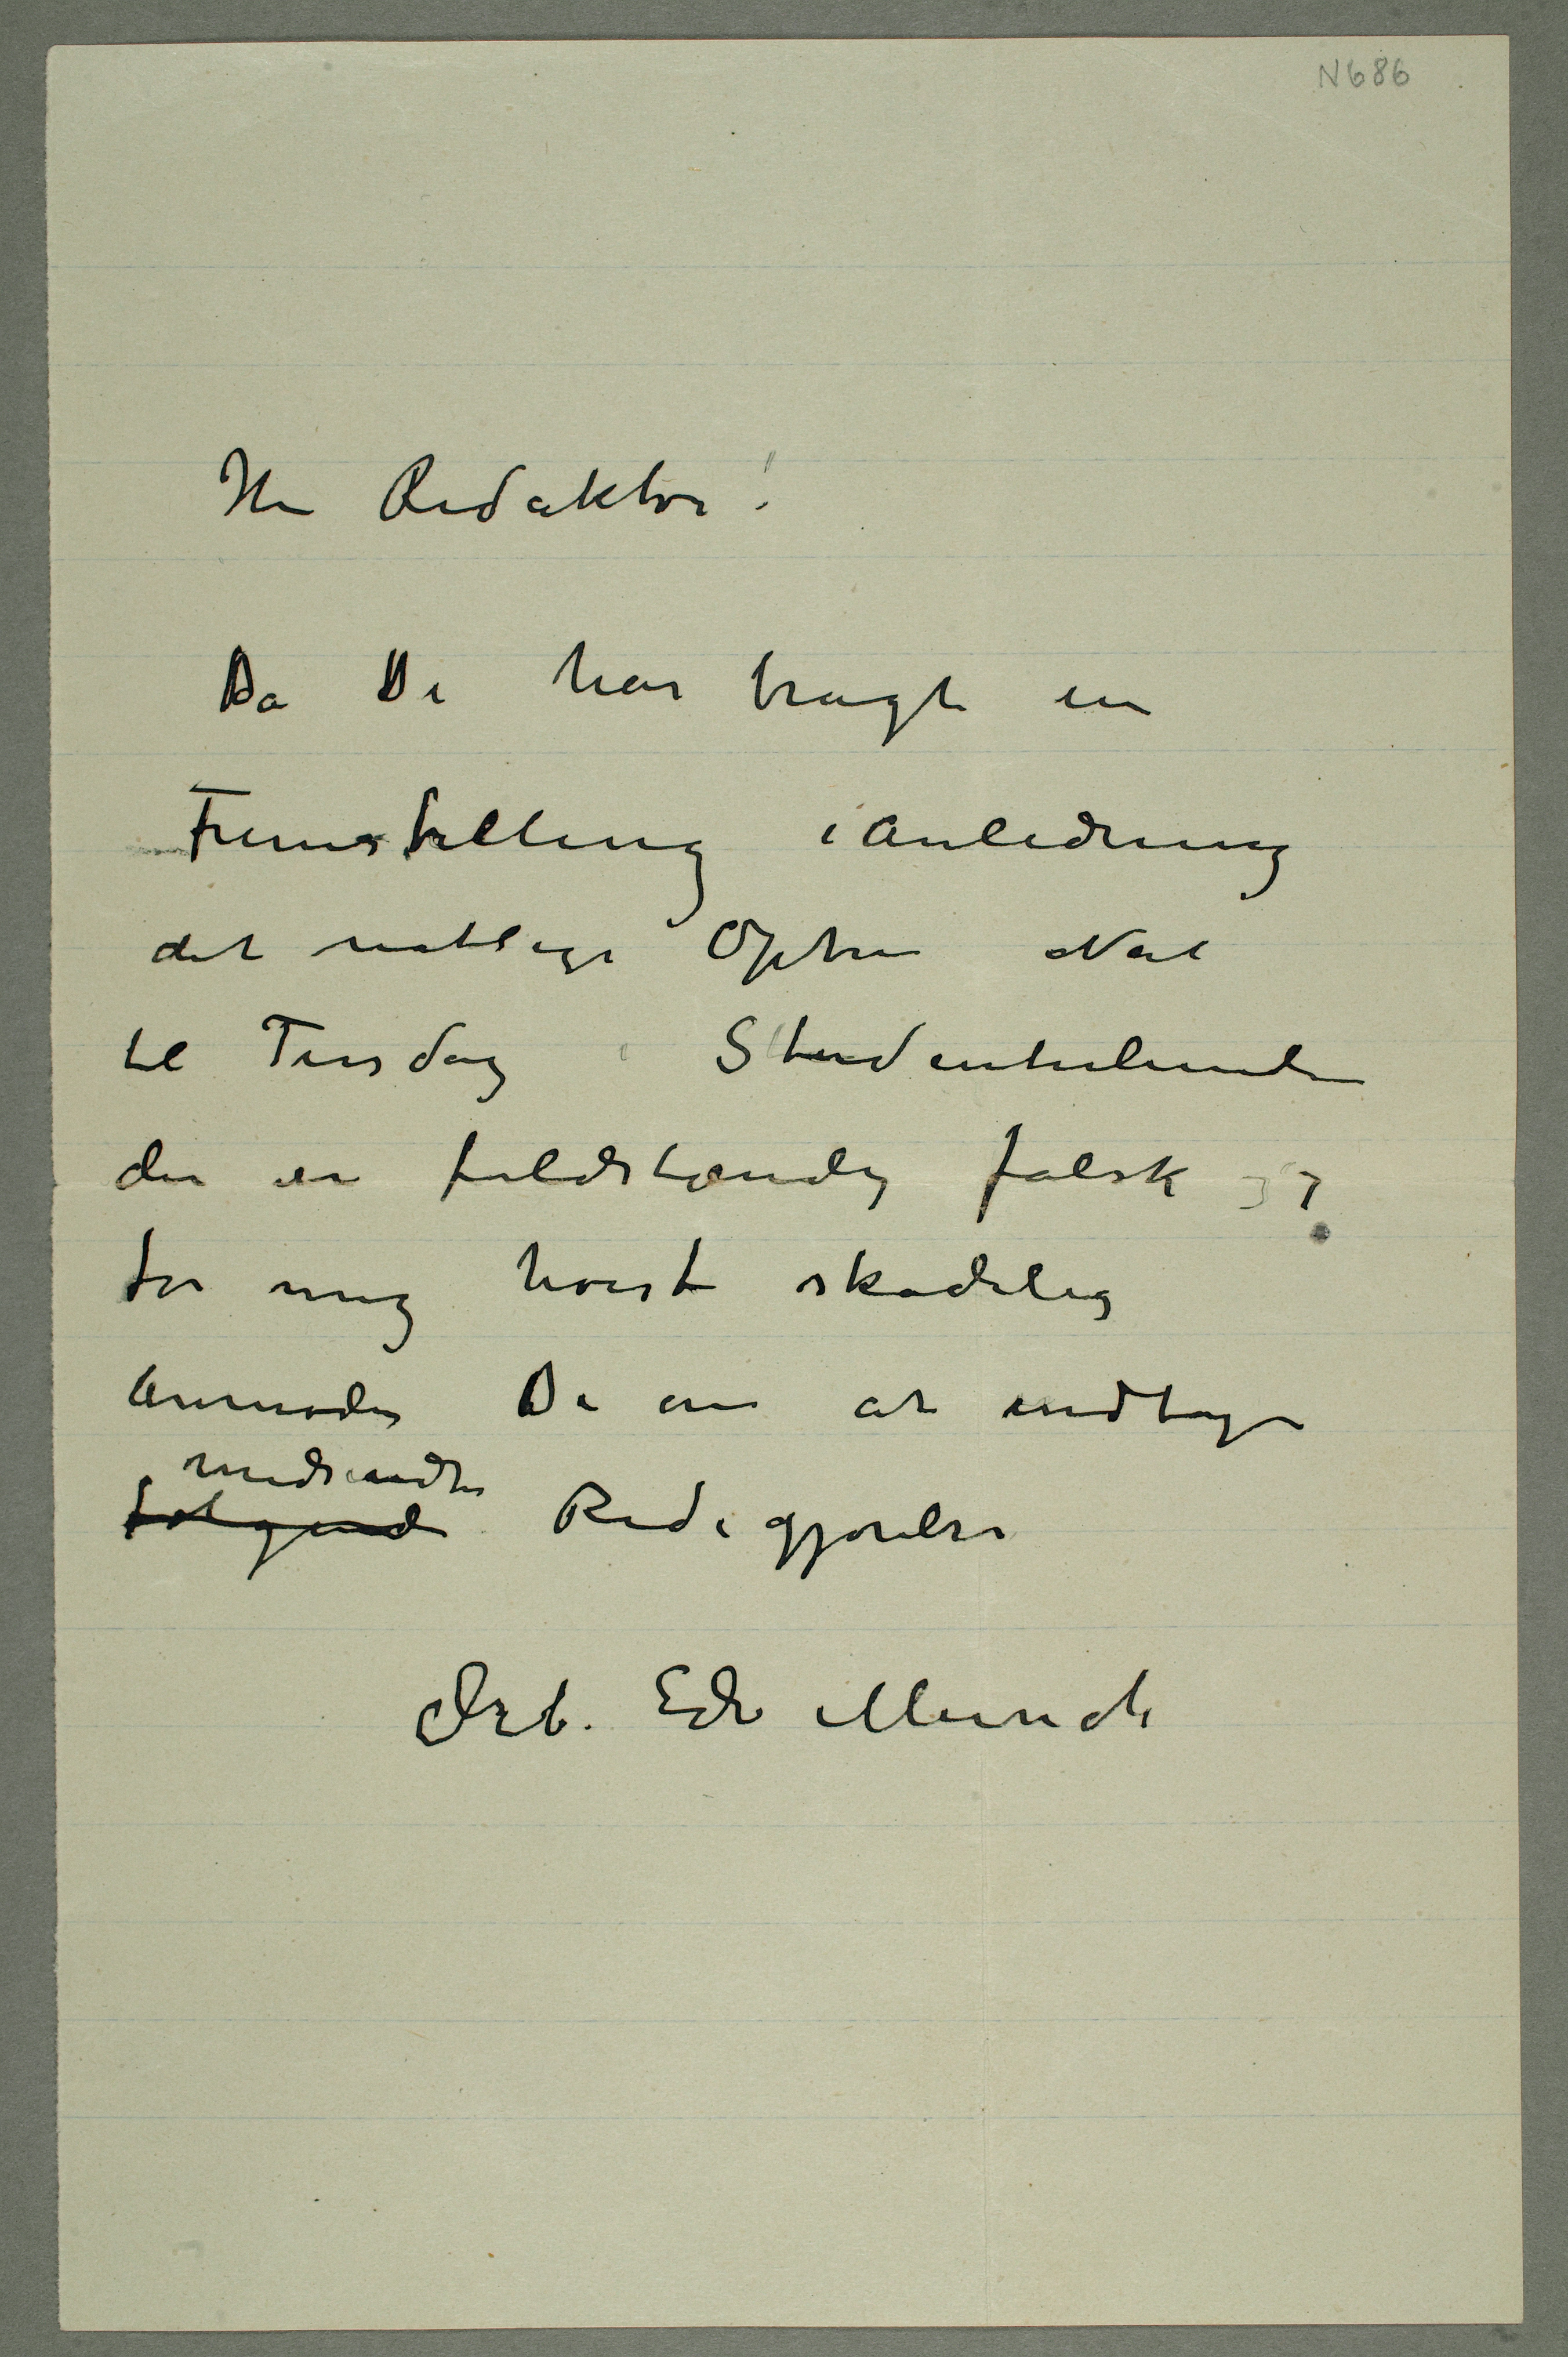 N686
Hr Redaktør!
Da De har bragt en
Fremstilling i Anledning
det natlige Optrin Nat
til Tirsdag i Studenterlunden
der er fuldstændig falsk og
for mig høist skadelig
anmodes De om at indtage
medsendte
følgende Redegjørelse
Erb. Edv Munch